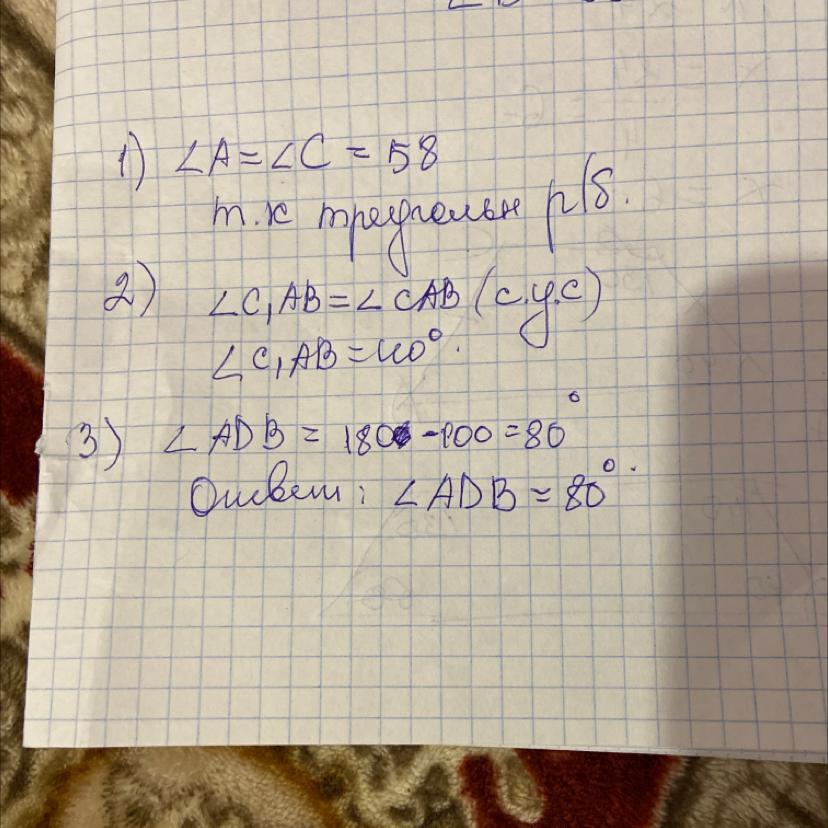 1) ∠A=∠C = 58
т.к треугольн р/б.
2) ∠C₁AB=∠CAB (с.у.с)
∠C₁AB=40°.
3) ∠ADB = 180 -100 =80°
Ответ: ∠ADB = 80°.